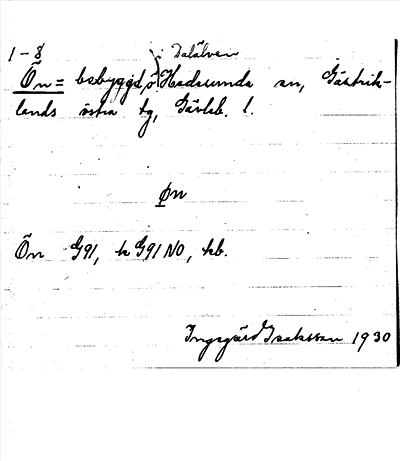 1-8 i Dalälven
Ön = bebyggd ö, Hedesunda sn, Gästrik-
lands östra tg, Gävleb. l.
øn
Ön G91, k G91 NO, kb.
Ingegärd Isaksson 1930